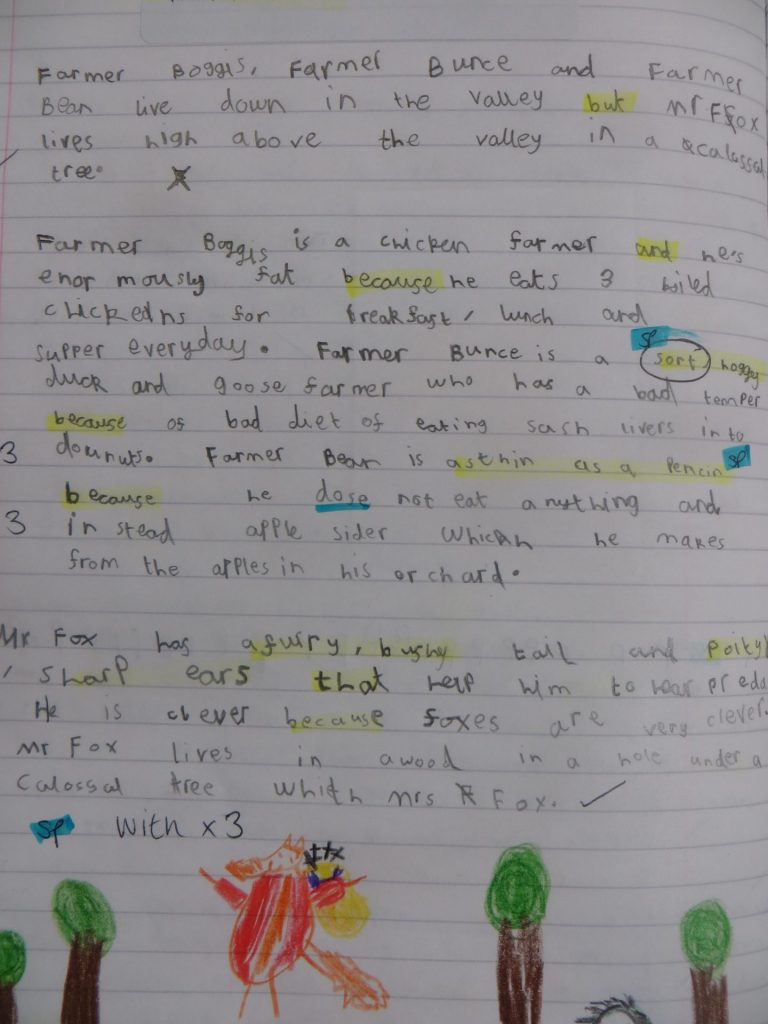 Farmer Boggis, Farmer Bunce and Farmer
Bean live down in the valley but mr Fox
lives high above the valley in a calassal
tree.
Farmer Boggis is a chicken farmer and he's
enormously fat because he eats 3 boiled
chickedns for breakfast, lunch and
supper everyday. Farmer Bunce is a sort
sp
duck and goose farmer who has a bad temper
because of bad diet of eating livers in to
3 dounuts. Farmer Bean is asthin as a
sp
because he dose not eat anything and
3 in stead apple sider which he makes
from the apples in his orchard.
Mr Fox has a furry, bushy tail and
sharp ears that help him to hear preda
He is clever because foxes are very clever.
Mr Fox lives in a wood in a hole under a
Calossal tree whith mrs Fox.
sp with x3